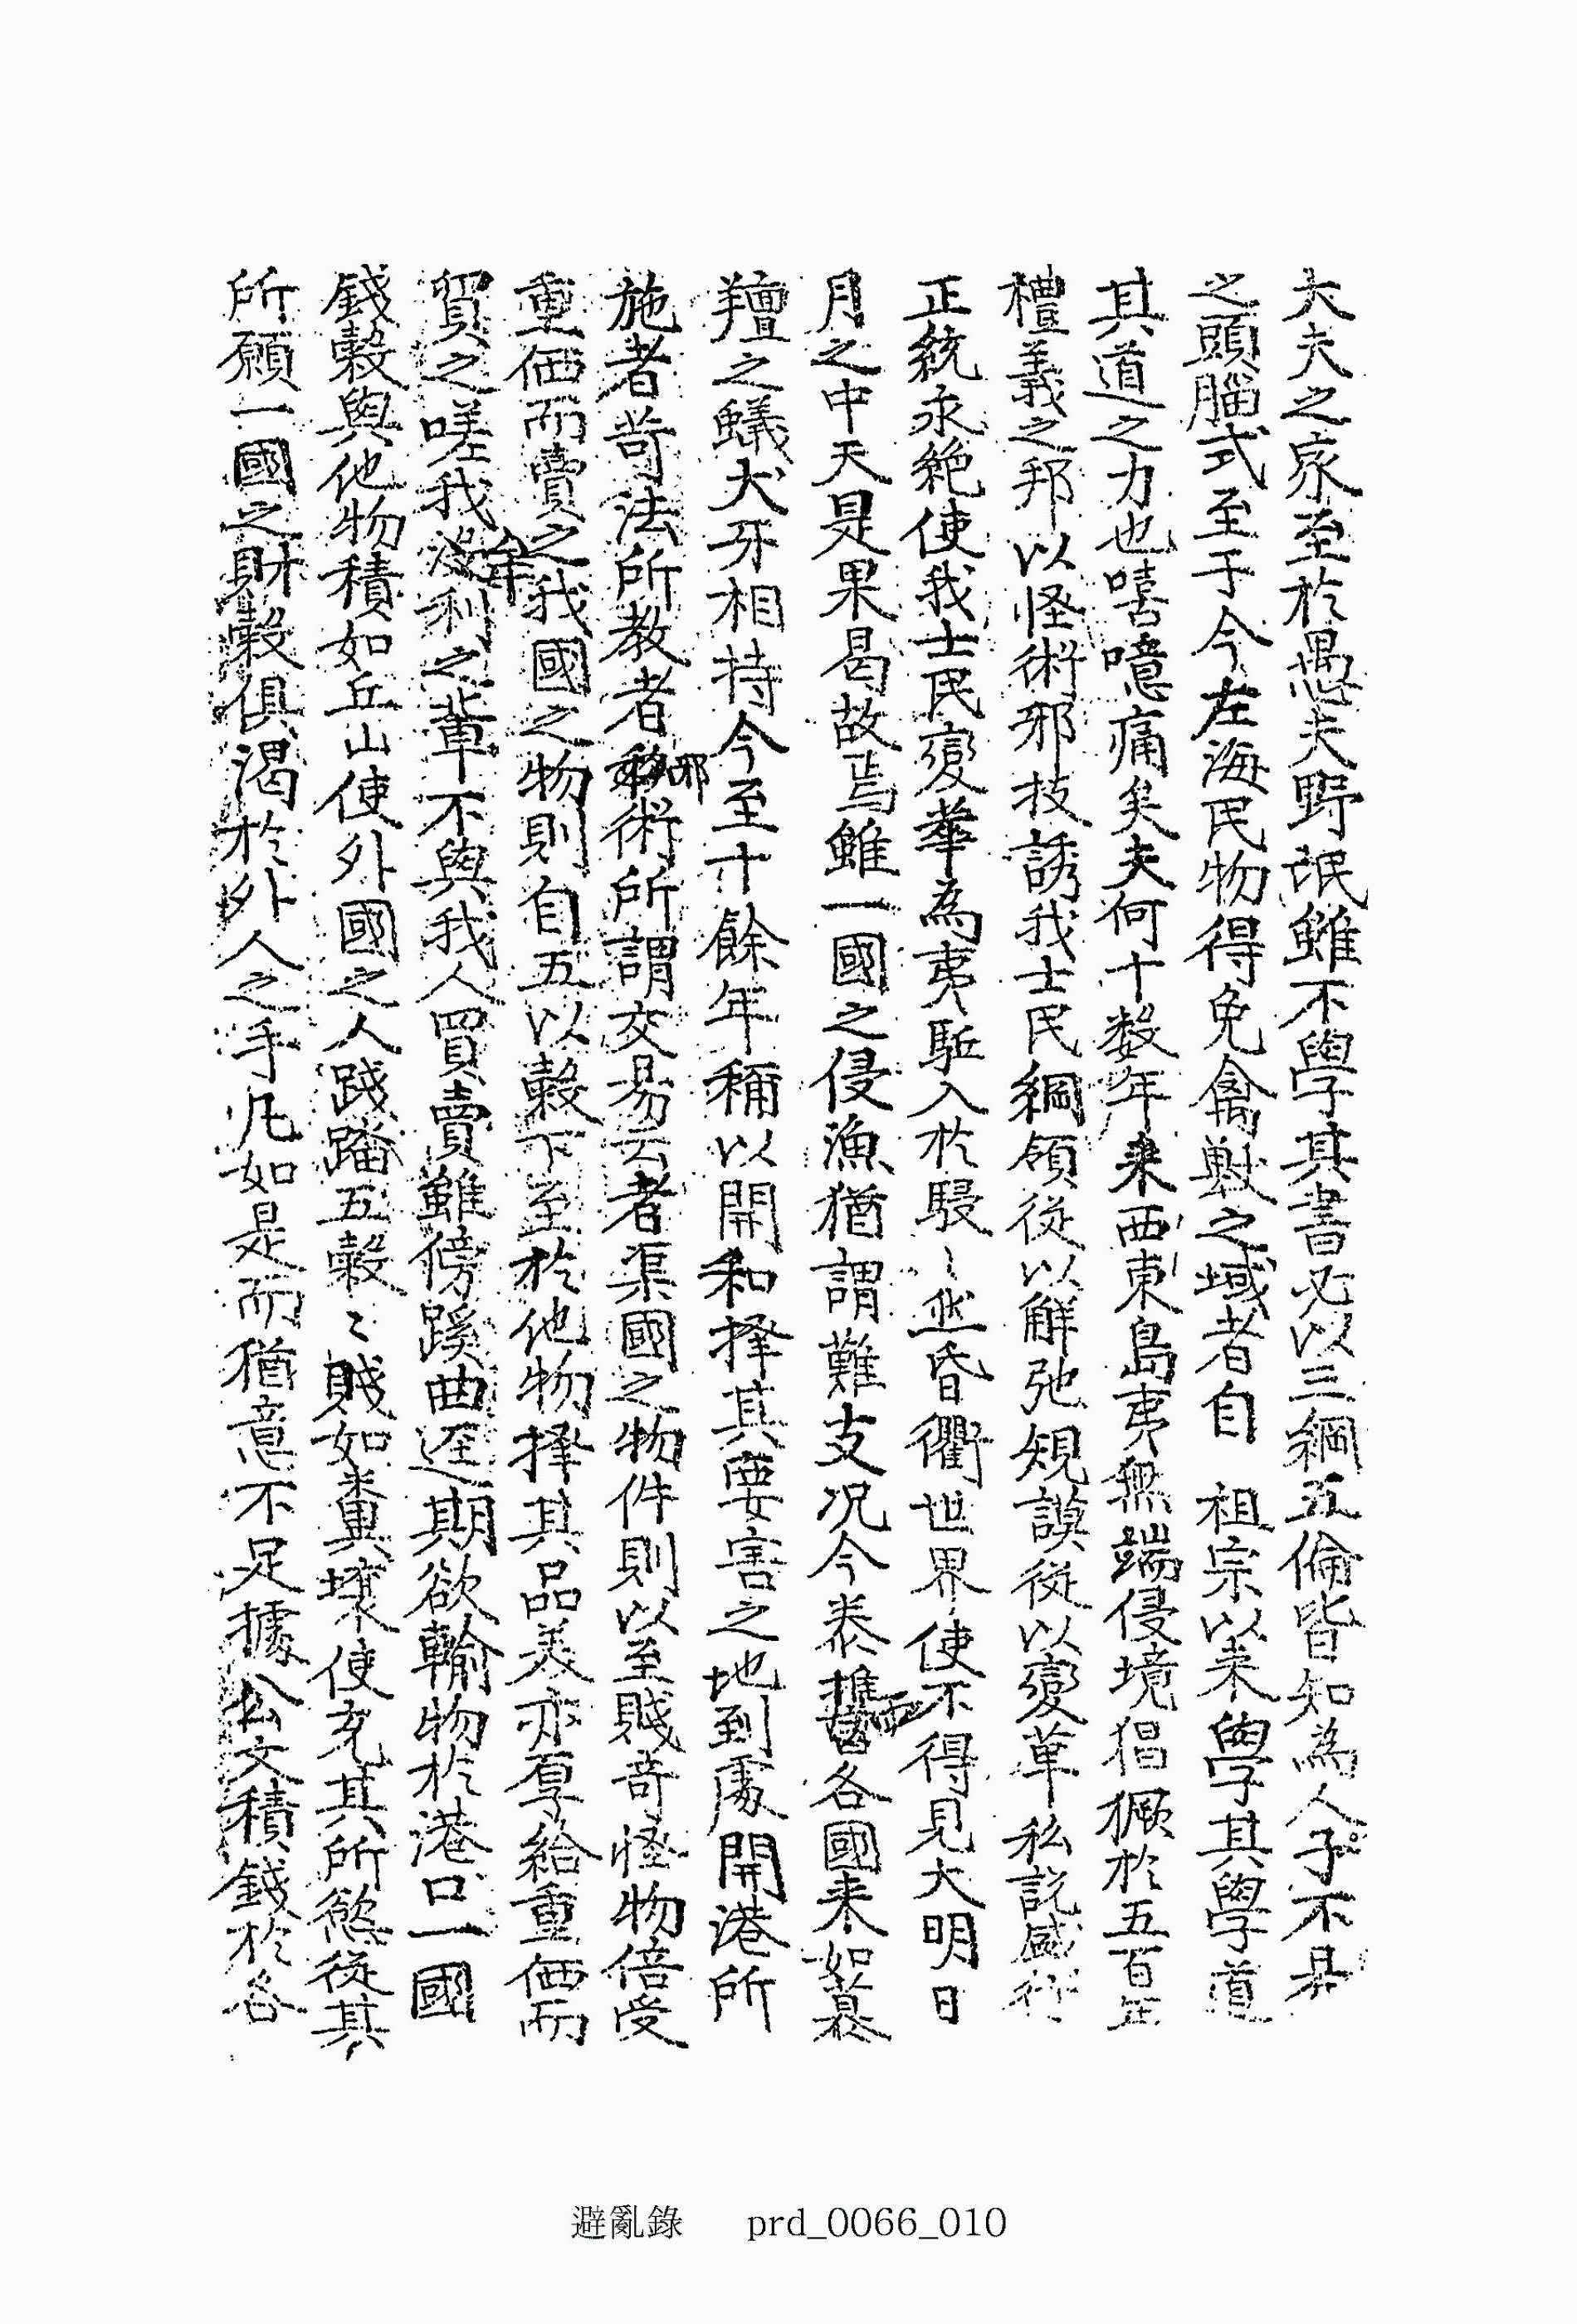 大夫之家至於愚夫野氓雖不學其書必以三綱五倫皆知為人子不畀
之頭腦式至于今左海民物得免禽獸之域者自 祖宗以来學其學道
其道之力也嘻噫痛矣夫何十数年来西東島夷無端侵境猖獗於五百年
禮義之邦以怪術邪技誘我士民綱領從以解弛規謨從以變革私說盛行
正統永絶使我士民變華為夷駈入於駸〻然昏衢世界使不得見大明日
月之中天是果曷故焉雖一國之侵漁猶謂難支况今泰西各國来如慕
羶之蟻犬牙相持今至十餘年稱以開和擇其要害之地到處開港所
施者苛法所教者邪術所謂交易云者渠國之物件則以至賤奇怪物倍受
重価而賣之我國之物則自五以穀下至於他物擇其品美亦厚給重価而
貿之嗟我牟利之輩不與我人買賣雖傍蹊曲逕期欲輸物於港口一國
錢穀與他物積如丘山使外國之人踐踏五穀〻賤如糞壤使充其所慾從其
所願一國之財穀俱渴於外人之手凡如是而猶意不足據公文積錢於各
避亂錄 prd_0066_010